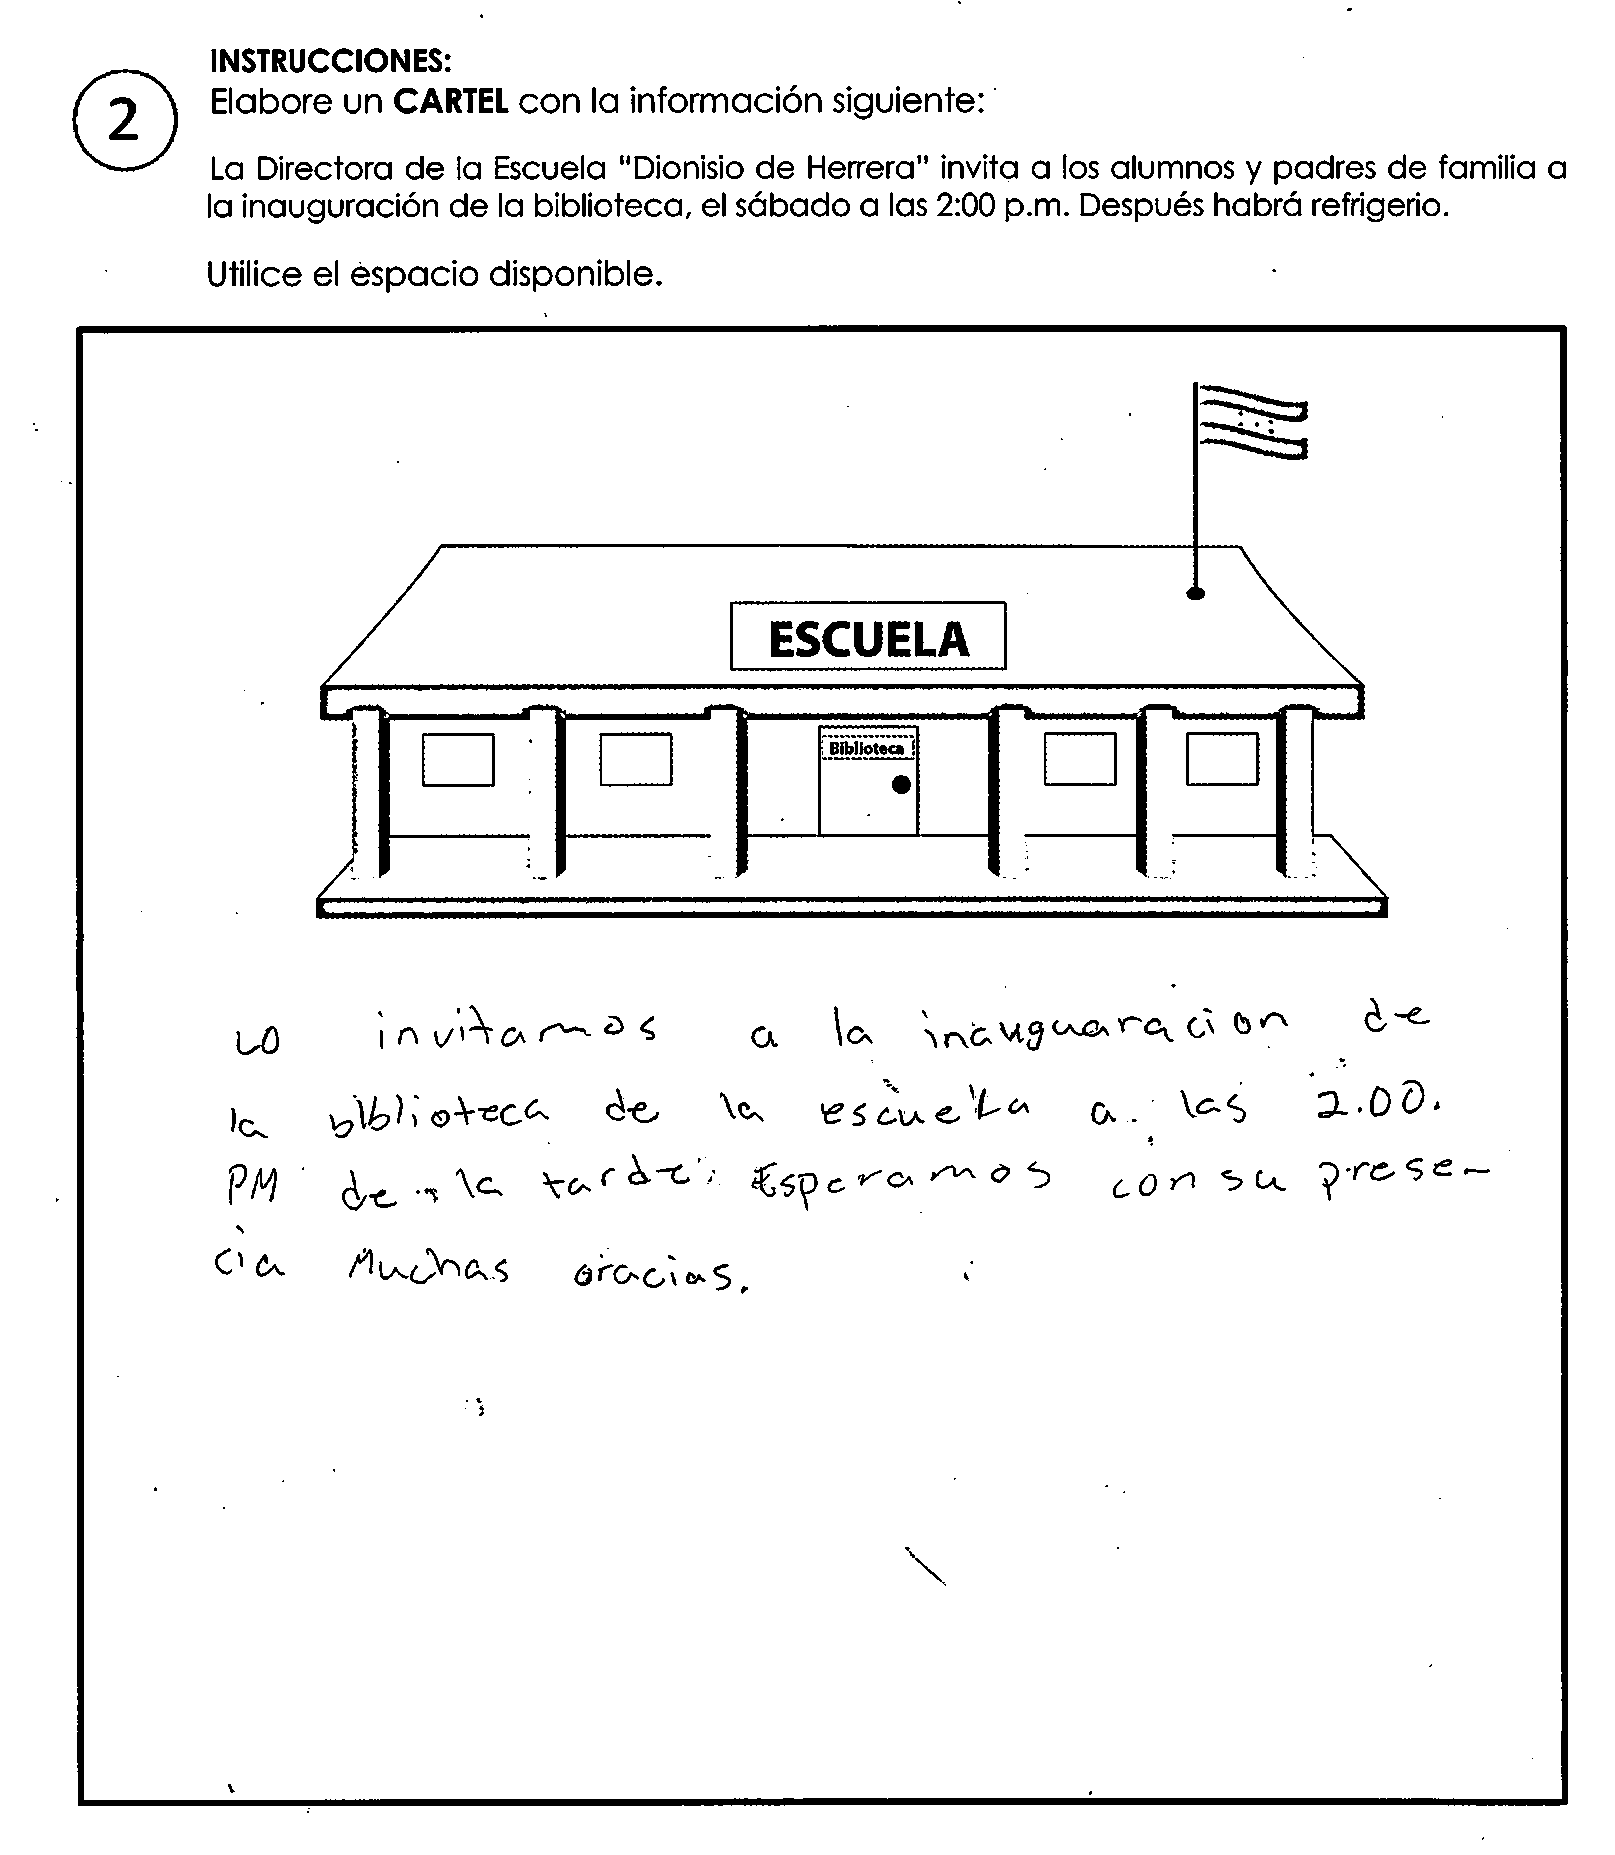 2
INSTRUCCIONES:
Elabore un CARTEL con la información siguiente:
La Directora de la Escuela "Dionisio de Herrera" invita a los alumnos y padres de familia a
la inauguración de la biblioteca, el sábado a las 2:00 p.m. Después habrá refrigerio.
Utilice el espacio disponible.
ESCUELA
Biblioteca
LO invitamos a la inauguaracion de
la biblioteca de la escuela a las 2.00.
PM de la tarde. Esperamos con su prese-
cia Muchas gracias.